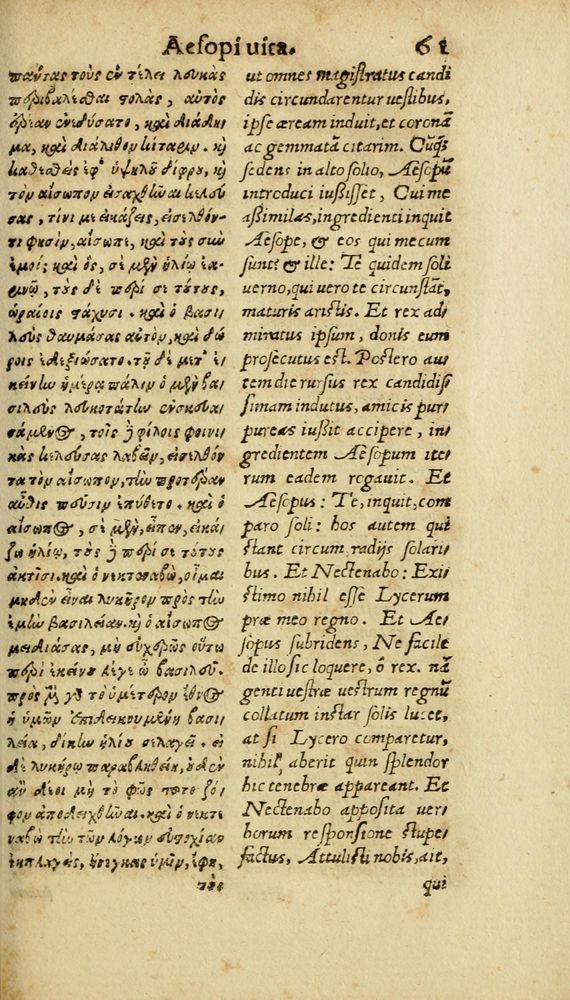 Aesopi uita. 61
πάντας τοὺς ἐν τέλει λευκὰς
περιβαλέσθαι στολὰς, αὐτὸς
ἐρεᾶν ἐνεδύσατο, καὶ διάδη
μα, καὶ διάλιθον κίταριν. καὶ
καθεσθεὶς ἐφ᾽ ὑψηλοῦ δίφρου, καὶ
τὸν αἴσωπον εἰσαχθῆναι κελεύ
σας, τίνι με εἰκάζεις, εἰσελθόν-
τι φησὶν, αἴσωπε, καὶ τοὺς σὺν
ἐμοί; καὶ ὃς, σὲ μὲν ἡλίῳ ἐα-
ρινῷ, τοὺς δὲ περὶ σὲ τούτους,
ὡραίοις στάχυσι. καὶ ὁ βασι
λεὺς θαυμάσας αὐτὸν, καὶ δώ
ροις ἐδεξιώσατο. τῇ δὲ μετ᾽ ἐ
κείνην ἡμέρᾳ πάλιν ὁ μὲν βα
σιλεὺς λευκοτάτην ἐνσκευα
σάμενος, τοῖς δὲ φίλοις φοινι
κᾶς κελεύσας λαβεῖν, εἰσελθόν
τα τὸν αἴσωπον, τὴν προτέραν
αὖθις πεῦσιν ἐπύθετο. καὶ ὁ
αἴσωπος, σὲ μὲν, εἶπον, εἰκά
ζω ἡλίῳ, τοὺς δὲ περὶ σὲ τούτους
ἀκτῖσι. καὶ ὁ νεκτεναβὼ, οἶμαι
μηδὲν εἶναι λυκῆρον πρὸς τὴν
ἐμὴν βασιλείαν. καὶ ὁ αἴσωπος
μειδιάσας, μὴ εὐχερῶς οὕτω
περὶ ἐκείνου λέγε ὦ βασιλεῦ.
πρὸς μὲν γὰρ τὸ ὑμέτερον ἔθνος
ἡ ὑμῶν ἐπιδεικνυμένη βασι
λεία, δίκην ἡλίου σελαγεῖ. εἰ
δὲ λυκήρῳ παραβληθείη, οὐδὲν
ἂν δέοι μὴ τὸ φῶς τοῦτο ζό
φον ἀποδειχθῆναι. καὶ ὁ νεκτε
ναβὼ τὴν τῶν λόγων εὐστοχίαν
ἐκπλαγεὶς, ἤνεγκας ἡμῖν, ἔφη,
ut omnes magistratus candi
dis circundarentur uestibus,
ipse æream induit, et coronā
ac gemmatā citarim. Cumq́;
sedens in alto solio, Aesopū
introduci iußisset, Cui me
aßimilas, ingredienti inquit
Aesope, & eos qui mecum
sunt? & ille: Te quidem soli
uerno, qui uero te circunstāt,
maturis aristis. Et rex ad
miratus ipsum, donis eum
prosecutus est. Postero au
tem die rursus rex candidis
simam indutus, amicis pur
pureas iußit accipere, in
gredientem Aesopum ite
rum eadem rogauit. Et
Aesopus: Te, inquit, com
paro soli: hos autem qui
stant circum radijs solari
bus. Et Nectenabo: Exi
stimo nihil esse Lycerum
præ meo regno. Et Ae
sopus subridens, Ne facile
de illo sic loquere, ô rex. nā
genti uestræ uestrum regnū
collatum instar solis lucet,
at si Lycero comparetur,
nihil aberit quin splendor
hic tenebræ appareant. Et
Nectenabo apposita uer
borum responsione stupe
factus, Attulisti nobis, ait,
qui